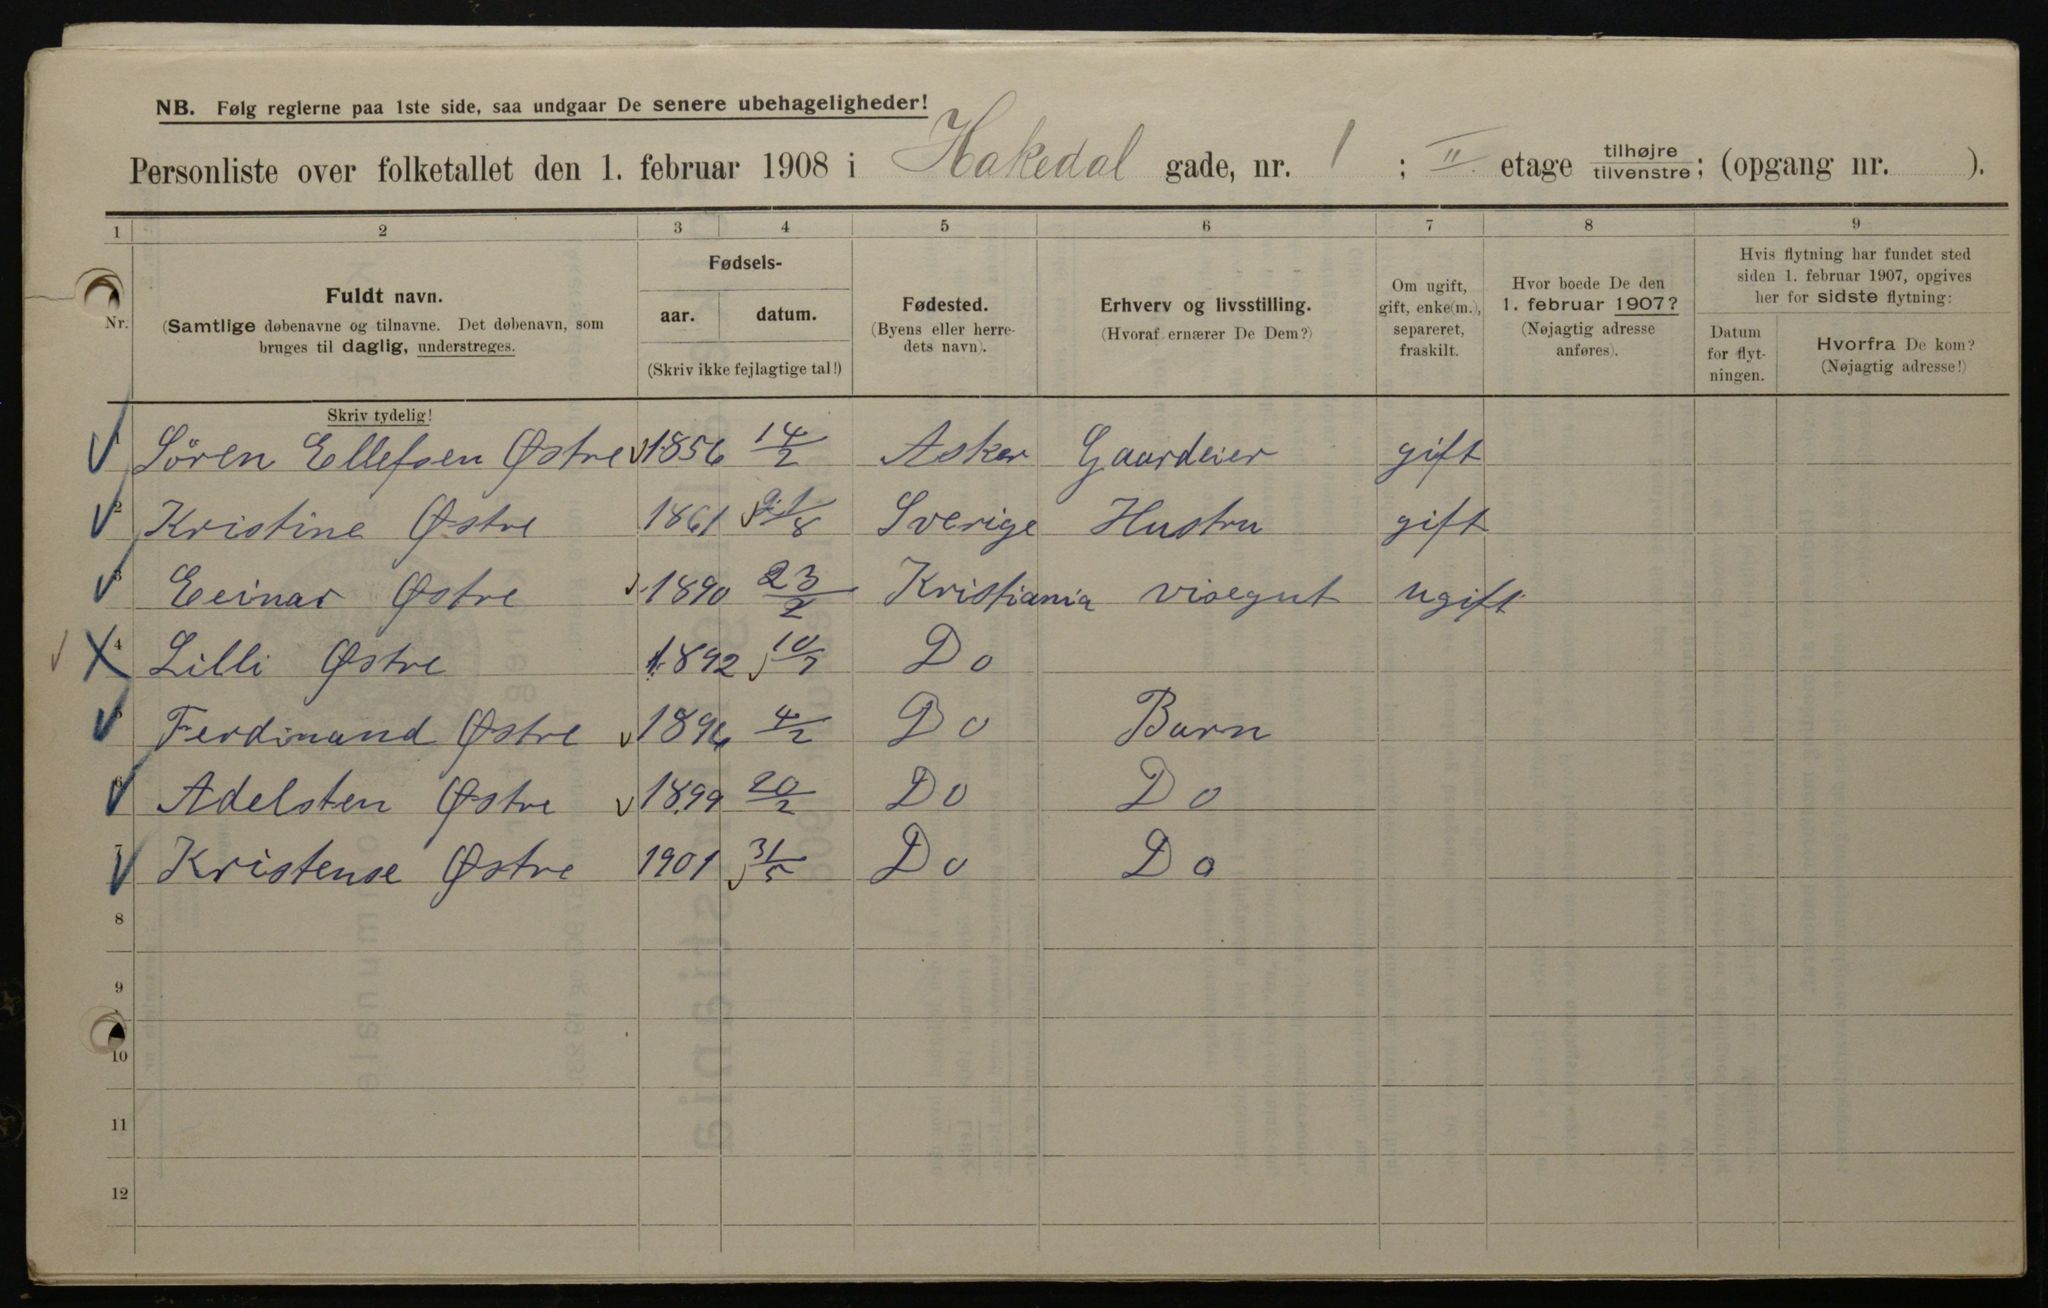 NB. Følg reglerne paa 1ste side, saa undgaar De senere ubehageligheder!
Personliste over folketallet den 1. februar 1908 i Hakedal gade, nr. 1 ; II etage tilhøjre tilvenstre; (opgang nr. ).
1 2 3 4 5 6 7 8 9
Nr.
Fuldt navn.
(Samtlige døbenavne og tilnavne. Det døbenavn, som
bruges til daglig, understreges.
Skriv tydelig!
Fødsels-
aar. datum.
(Skriv ikke fejlagtige tal!)
Fødested.
(Byens eller herre-
dets navn).
Erhverv og livsstilling.
(Hvoraf ernærer De Dem?)
Om ugift,
gift, enke(m.),
separeret,
fraskilt.
Hvor boede De den
1. februar 1907?
(Nøjagtig adresse
anføres).
Hvis flytning har fundet sted
siden 1. februar 1907, opgives
her for sidste flytning:
Datum
for flyt-
ningen.
Hvorfra De kom?
(Nøjagtig adresse!)
1 Sören Ellefsen Østre 1856 14/2 Asker Gaardeier gift
2 Kristine Østre 1861 21/8 Sverige Hustru gift
3 Eeinar Østre 1890 23/2 Kristiania visegut ugift
4 Lilli Østre 1892 10/7 Do
5 Ferdinand Østre 1896 4/2 Do Barn
6 Adelsten Østre 1899 20/2 Do Do
7 Kristense Østre 1901 31/5 Do Do
8
9
10
11
12